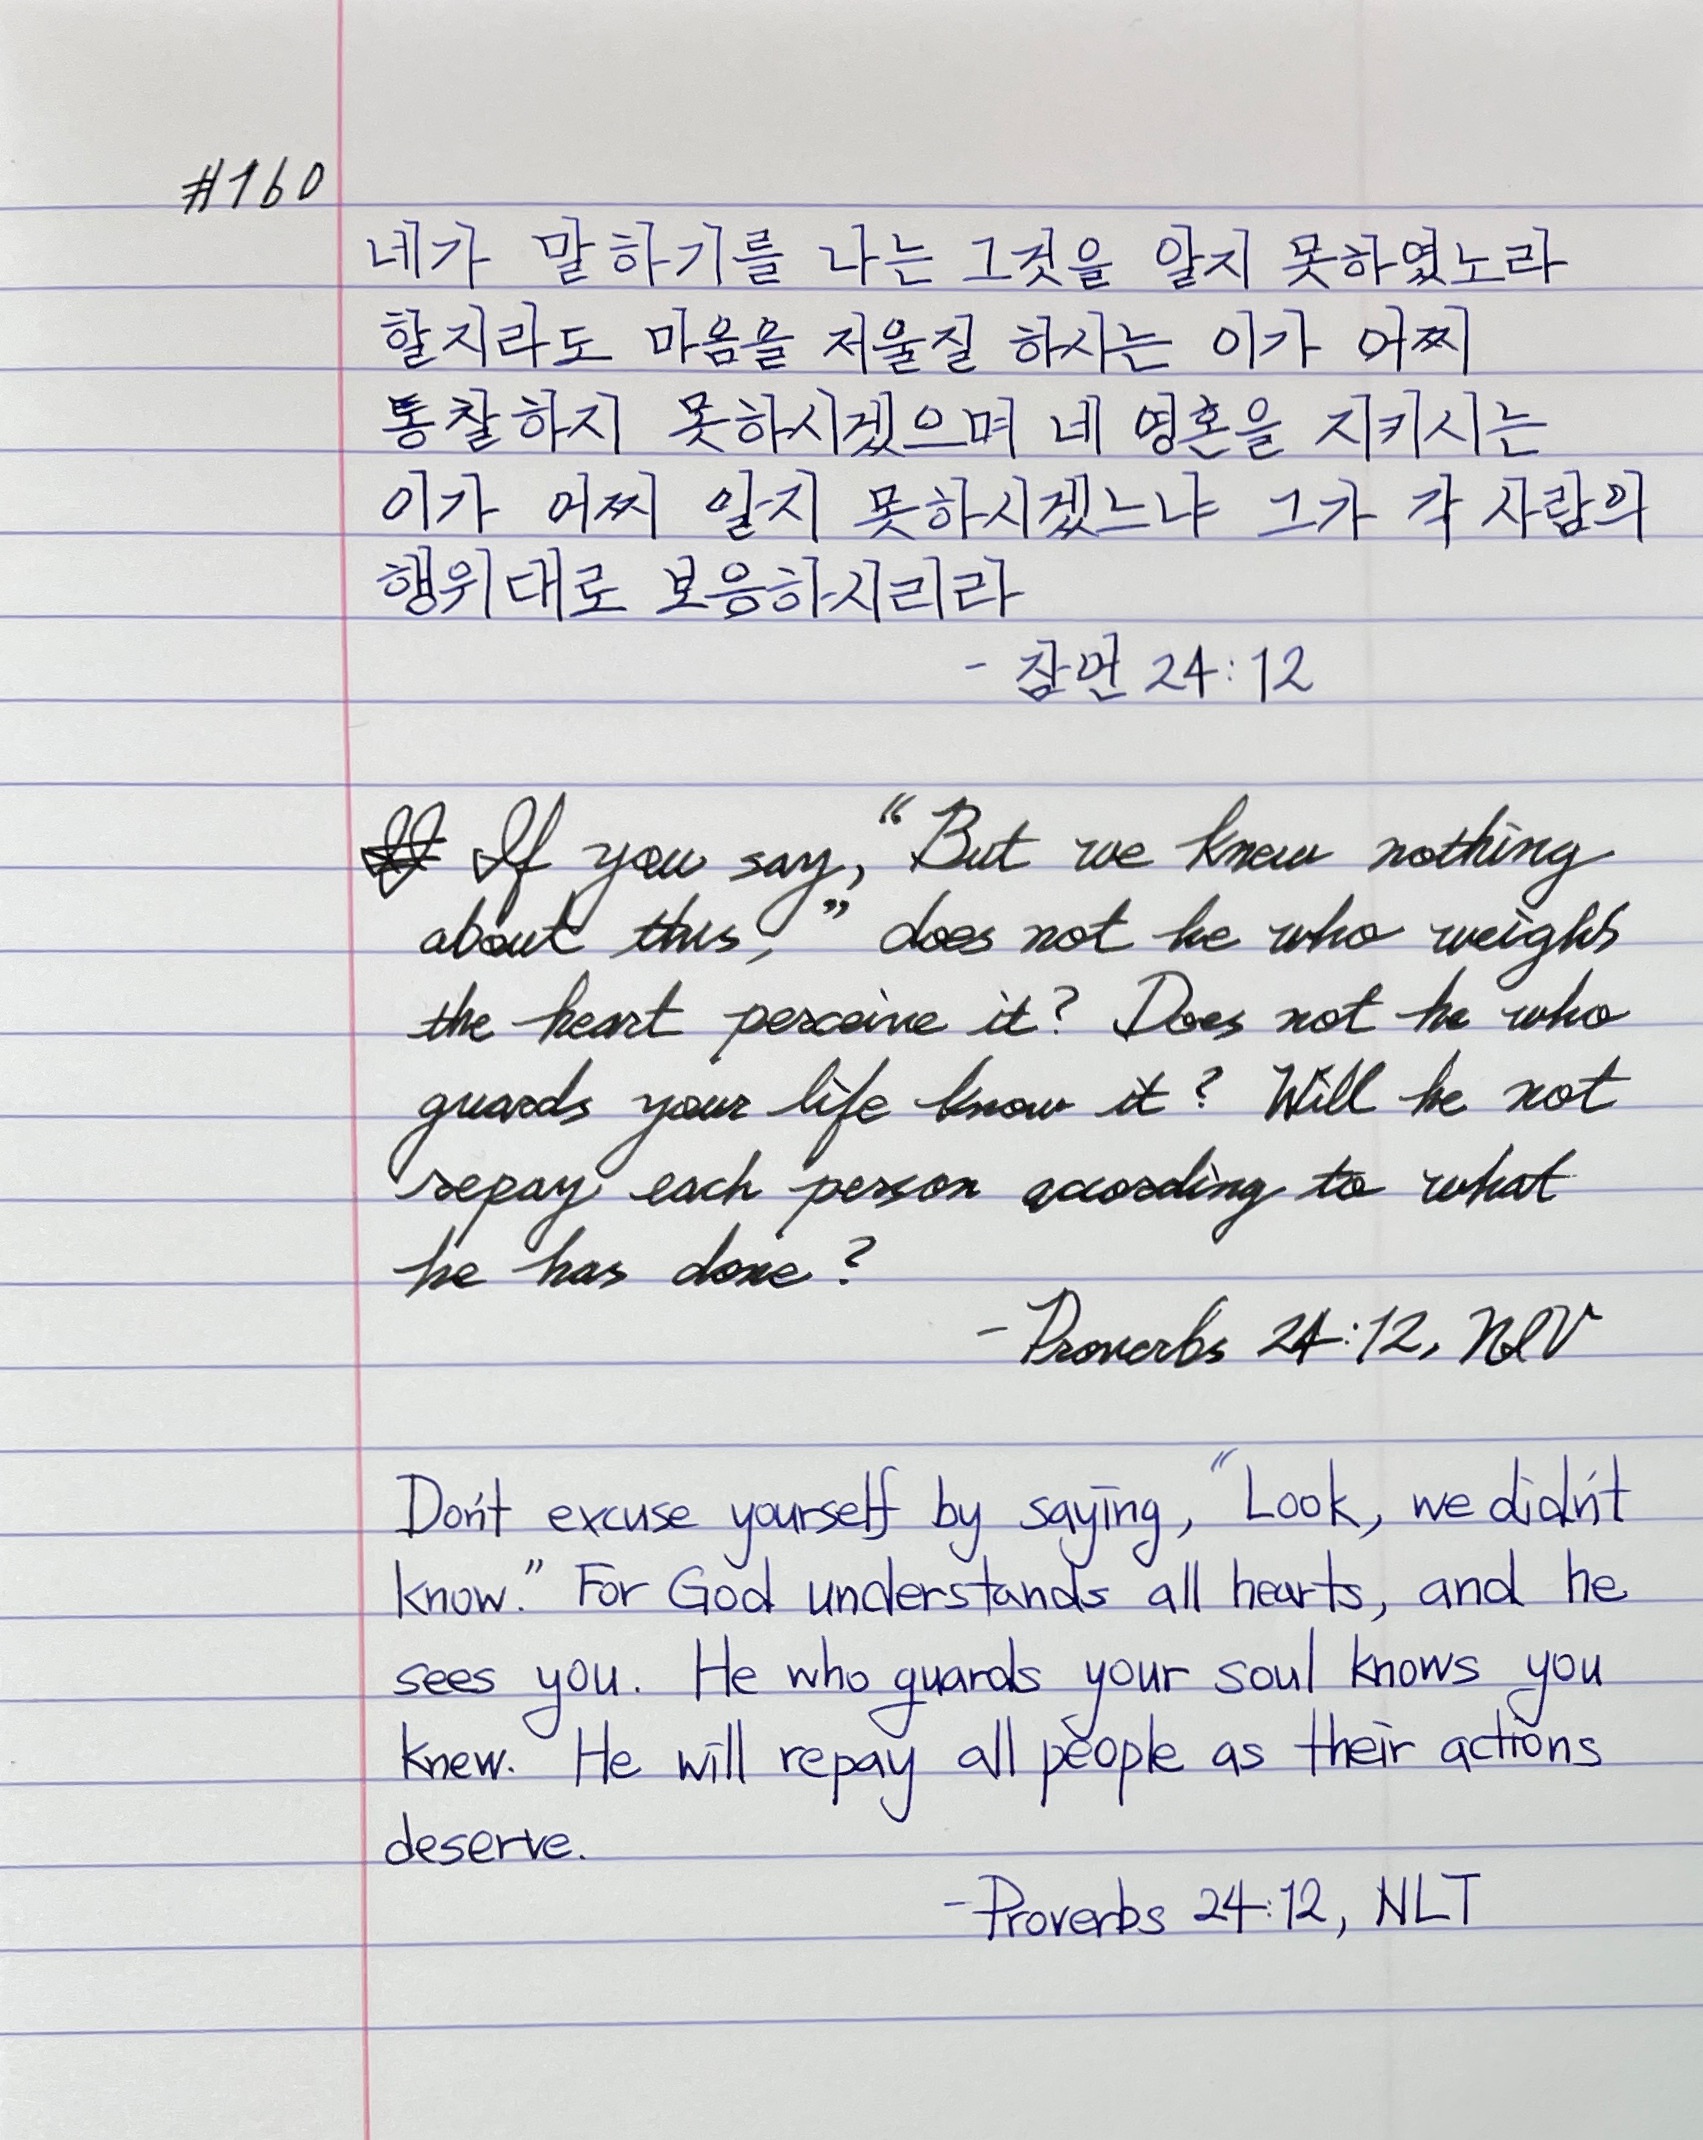 #160
네가 말하기를 나는 그것을 알지 못하였노라
할지라도 마음을 저울질 하시는 이가 어찌
통찰하지 못하시겠으며 네 영혼을 지키시는
이가 어찌 알지 못하시겠느냐 그가 각 사람의
행위대로 보응하시리라
- 잠언 24:12
If you say, “But we knew nothing
about this,” does not he who weighs
the heart perceive it? Does not he who
guards your life know it? Will he not
repay each person acording to what
he has done?
- Proverbs 24:12, NIV
Don't excuse yourself by saying, “Look, we didn't
know.” For God understands all hearts, and he
sees you. He who guards your soul knows you
knew. He will repay all people as their actions
deserve.
- Proverbs 24:12, NLT